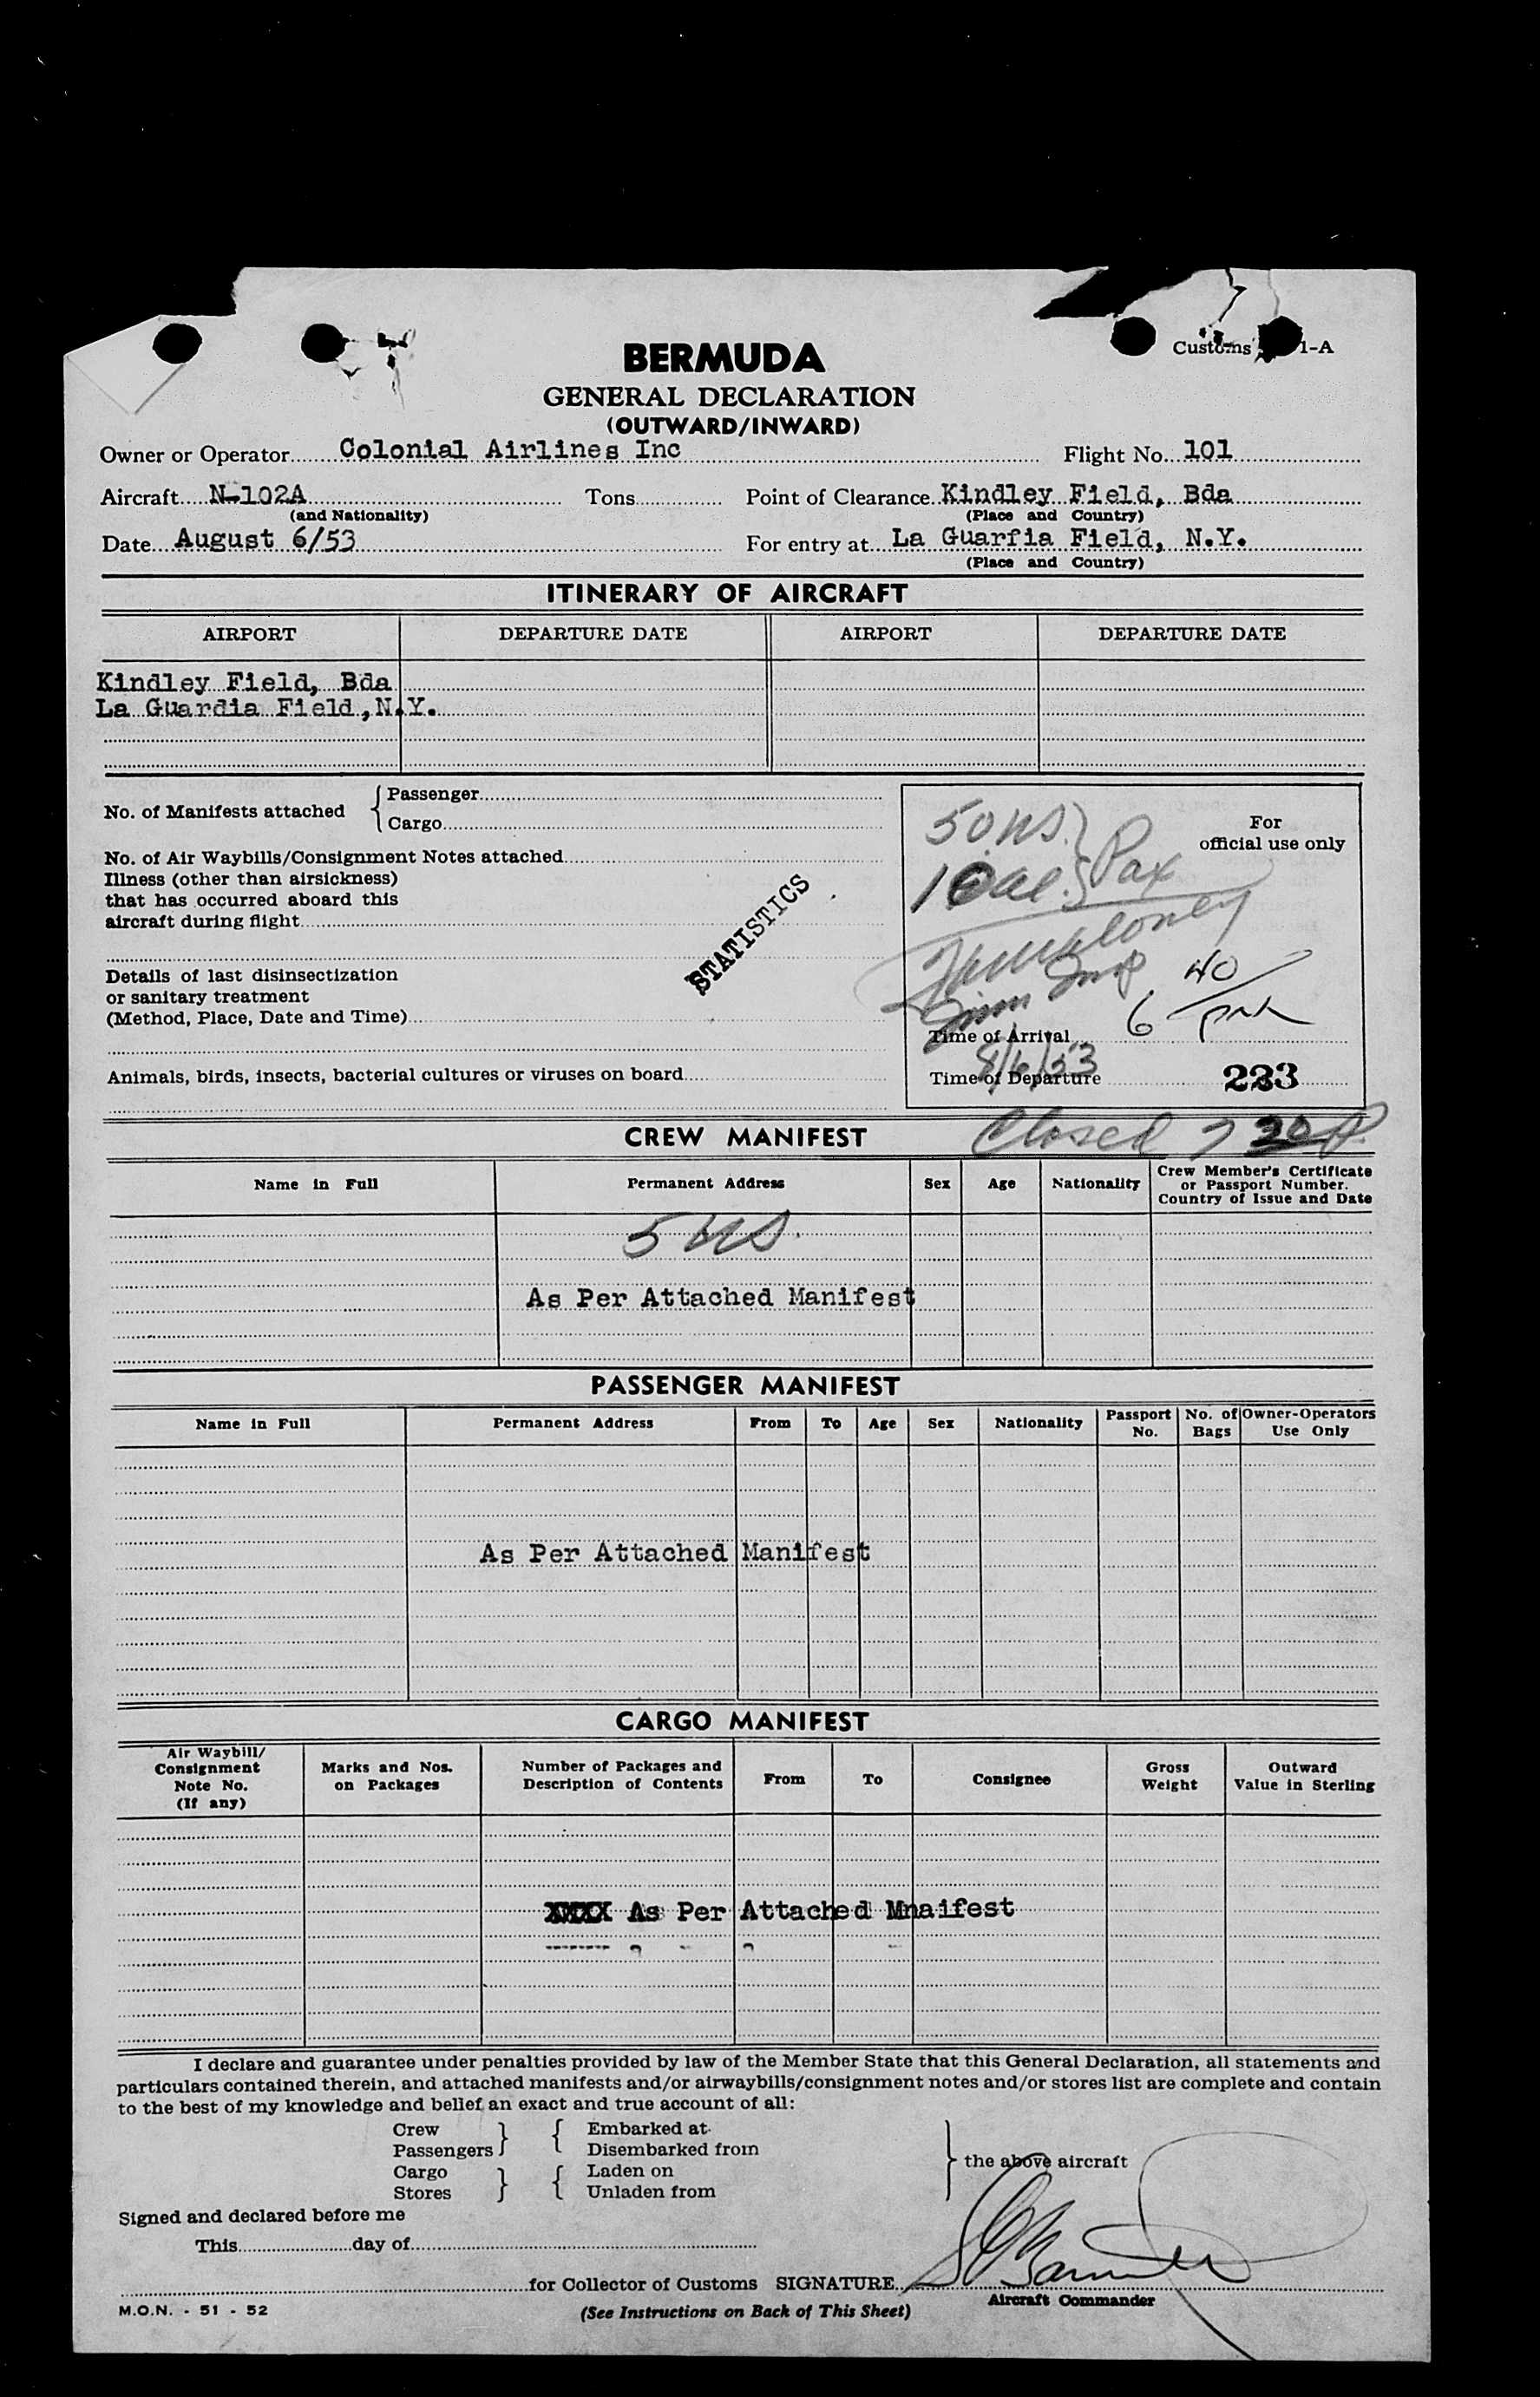 Customs 1-A
BERMUDA
GENERAL DECLARATION
(OUTWARD/INWARD)
Owner or Operator Colonial Airlines Inc Flight No. 101
Aircraft N-102A Tons Point of Clearance Kindley Field, Bda
(and Nationality) (Place and Country)
Date August 6/53 For entry at La Guarfia Field, N.Y.
(Place and Country)
ITINERARY OF AIRCRAFT
AIRPORT DEPARTURE DATE AIRPORT DEPARTURE DATE
Kindley Field, Bda
La Guardia Field,N.Y.
No. of Manifests attached { Passenger
Cargo
No. of Air Waybills/Consignment Notes attached
Illness (other than airsickness)
that has occurred aboard this
aircraft during flight
STATISTICS
Details of last disinsectization
or sanitary treatment
(Method, Place, Date and Time)
Animals, birds, insects, bacterial cultures or viruses on board
For
official use only
50 US } Pax
Imm Insp
6 40/pm
Time of Arrival
8/6/53
Time of Departure 223
Closed 7 30 P.
CREW MANIFEST
Name in Full Permanent Address Sex Age Nationality Crew Member's Certificate
or Passport Number.
Country of Issue and Date
5 US.
As Per Attached Manifest
PASSENGER MANIFEST
Name in Full Permanent Address From To Age Sex Nationality Passport No. No. of Bags Owner-Operators Use Only
As Per Attached Manifest
CARGO MANIFEST
Air Waybill/
Consignment
Note No.
(If any)
Marks and Nos.
on Packages
Number of Packages and
Description of Contents
From To Consignee
Gross
Weight
Outward
Value in Sterling
XXXX As Per Attached Mnaifest
I declare and guarantee under penalties provided by law of the Member State that this General Declaration, all statements and
particulars contained therein, and attached manifests and/or airwaybills/consignment notes and/or stores list are complete and contain
to the best of my knowledge and belief an exact and true account of all:
Crew } { Embarked at
Passengers Disembarked from
} the above aircraft
Cargo } { Laden on
Stores Unladen from
Signed and declared before me
This day of
for Collector of Customs SIGNATURE
Aircraft Commander
M.O.N. - 51 - 52 (See Instructions on Back of This Sheet)